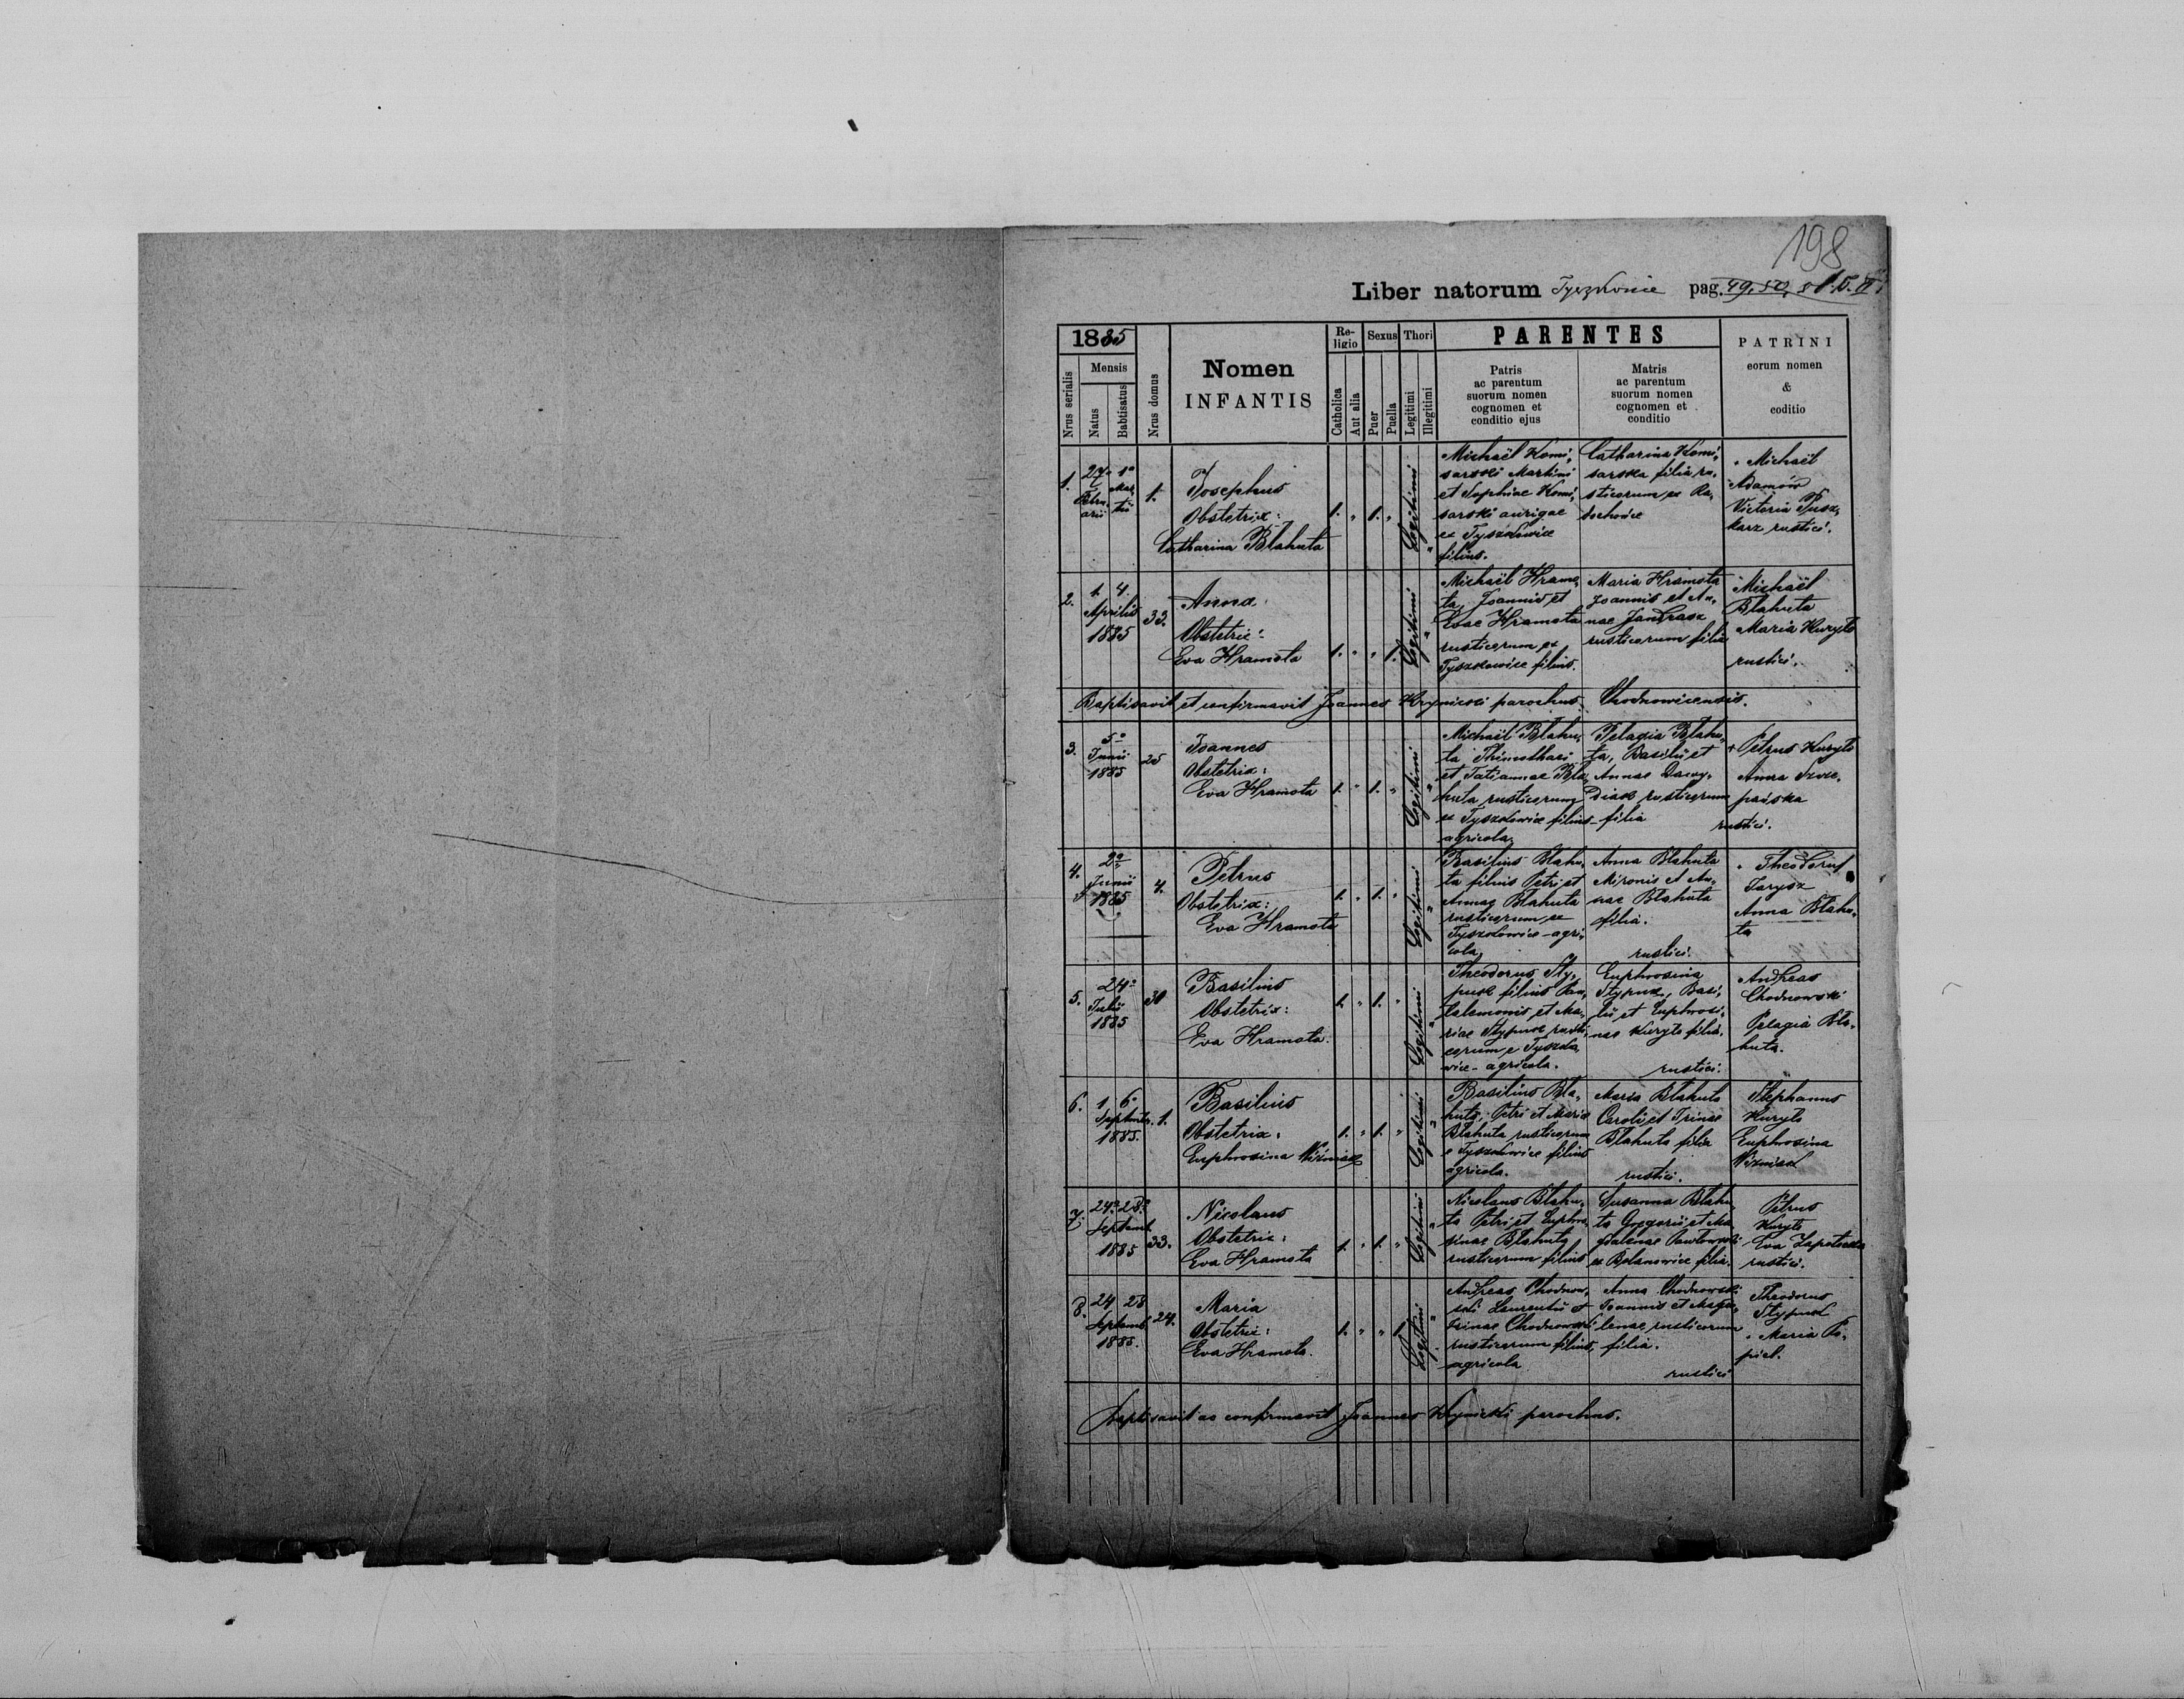 198
Liber natorum Tyszkowice pag. 49, 50, 51. T. II
1885
Nrus serialis
Mensis
Natus
Babtisatus
Nrus domus
Nomen
INFANTIS
Re-
ligio
Catholica
Aut alia
Sexus
Puer
Puella
Thori
Legitimi
Illegitimi
PARENTES
Patris
ac parentum
suorum nomen
cognomen et
conditio ejus
Matris
ac parentum
suorum nomen
cognomen et
conditio
PATRINI
eorum nomen
&
coditio
1.
27 1º
Februarii
Martii
1.
Josephus
Obstetrix:
Catharina Blahuta
1. " 1. "
Legitimi "
Michaël Komi,
sarski Martini
et Sophiae Komi,
sarski aurigae
ex Tyszkowice
filius.
Catharina Komi,
sarska filia ru,
sticorum ex Ra,
dochonice
Michaël
Adamów
Victoria Pusz,
karz rustici.
2.
1. 4.
Aprilis
1885
33.
Anna
Obstetrix:
Eva Hramota
1. " " 1.
Legitimi "
Michaël Hramo,
ta, Joannis et
Evae Hramota
rusticorum ex
Tyszkowice filius.
Maria Hramota
Joannis et An,
nae
rusticorum filia
Michaël
Blahuta
Maria Kuryło
rustici.
Baptisavit et confirmavit Joannes Krynicki parochus Chodnowicensis.
3.
5º
Junii
1885
25
Joannes
Obstetrix:
Eva Hramota
1. " 1. "
Legitimi "
Michaël Blahu,
ta Thimothaei
et Tatiannae Bla,
huta rusticorum
ex Tyszkowice filius
agricola,
Pelagia Blahu,
ta, Basilii et
Annae
rusticorum
filia
Petrus Kuryło
Anna
rustici.
4.
2º
Junii
1885
4.
Petrus
Obstetrix:
Eva Hramota
1. " 1. "
Legitimi "
Basilius Blahu,
ta filius Petri et
Annae Blahuta
rusticorum ex
Tyszkowice - agri,
cola,
Anna Blahuta
Mironis et An,
nae Blahuta
filia.
rustici.
Theodorus
Jarysz
Anna Blahu,
ta
5.
24º
Julii
1885
30
Basilius
Obstetrix:
Eva Hramota.
1. " 1. "
Legitimi "
Theodorus Sty,
puk filius Pan,
talemonis et Ma,
riae Stypuk rusti,
corum e Tyszko,
wice - agricola.
Euphrosina
Stypuk, Basi,
lii et Euphrosi,
nae Kuryło filia.
rustici.
Andreas
Chodnowski
Pelagia Bla,
huta.
6.
1. 6º
Septembr.
1885.
1.
Basilius
Obstetrix:
Euphrosina Niżnik
1. " 1. "
Legitimi "
Basilius Bla,
huta, Petri et Maria
Blahuta rusticorum
e Tyszkowice filius
agricola.
Maria Blahuta
Caroli et Irinae
Blahuta filia
rustici.
Stephanus
Kuryło
Euphrosina
7.
24º 28º
Septemb.
1885
33.
Nicolaus
Obstetrix:
Eva Hramota
1. " 1. "
Legitimi "
Nicolaus Blahu,
ta Petri et Euphro,
sinae Blahuta
rusticorum filius
Susanna Blahu,
ta Gregorii et Ma,
gdalenae Pawłowski
ex Bolanowice filia.
Petrus
Kuryło
Eva
rustici.
8.
24 28
Septemb.
1885.
24.
Maria
Obstetrix:
Eva Hramota.
1. " " 1.
Legitimi "
Andreas Chodnow,
ski Laurentii et
Irinae Chodnowski
rusticorum filius,
agricola
Anna Chodnowski
Joannis et Magda,
lenae rusticorum
filia.
rustici
Theodorus
Stypuk
Maria Po,
piel.
Baptisavit ac confirmavit Joannes Krynicki parochus.